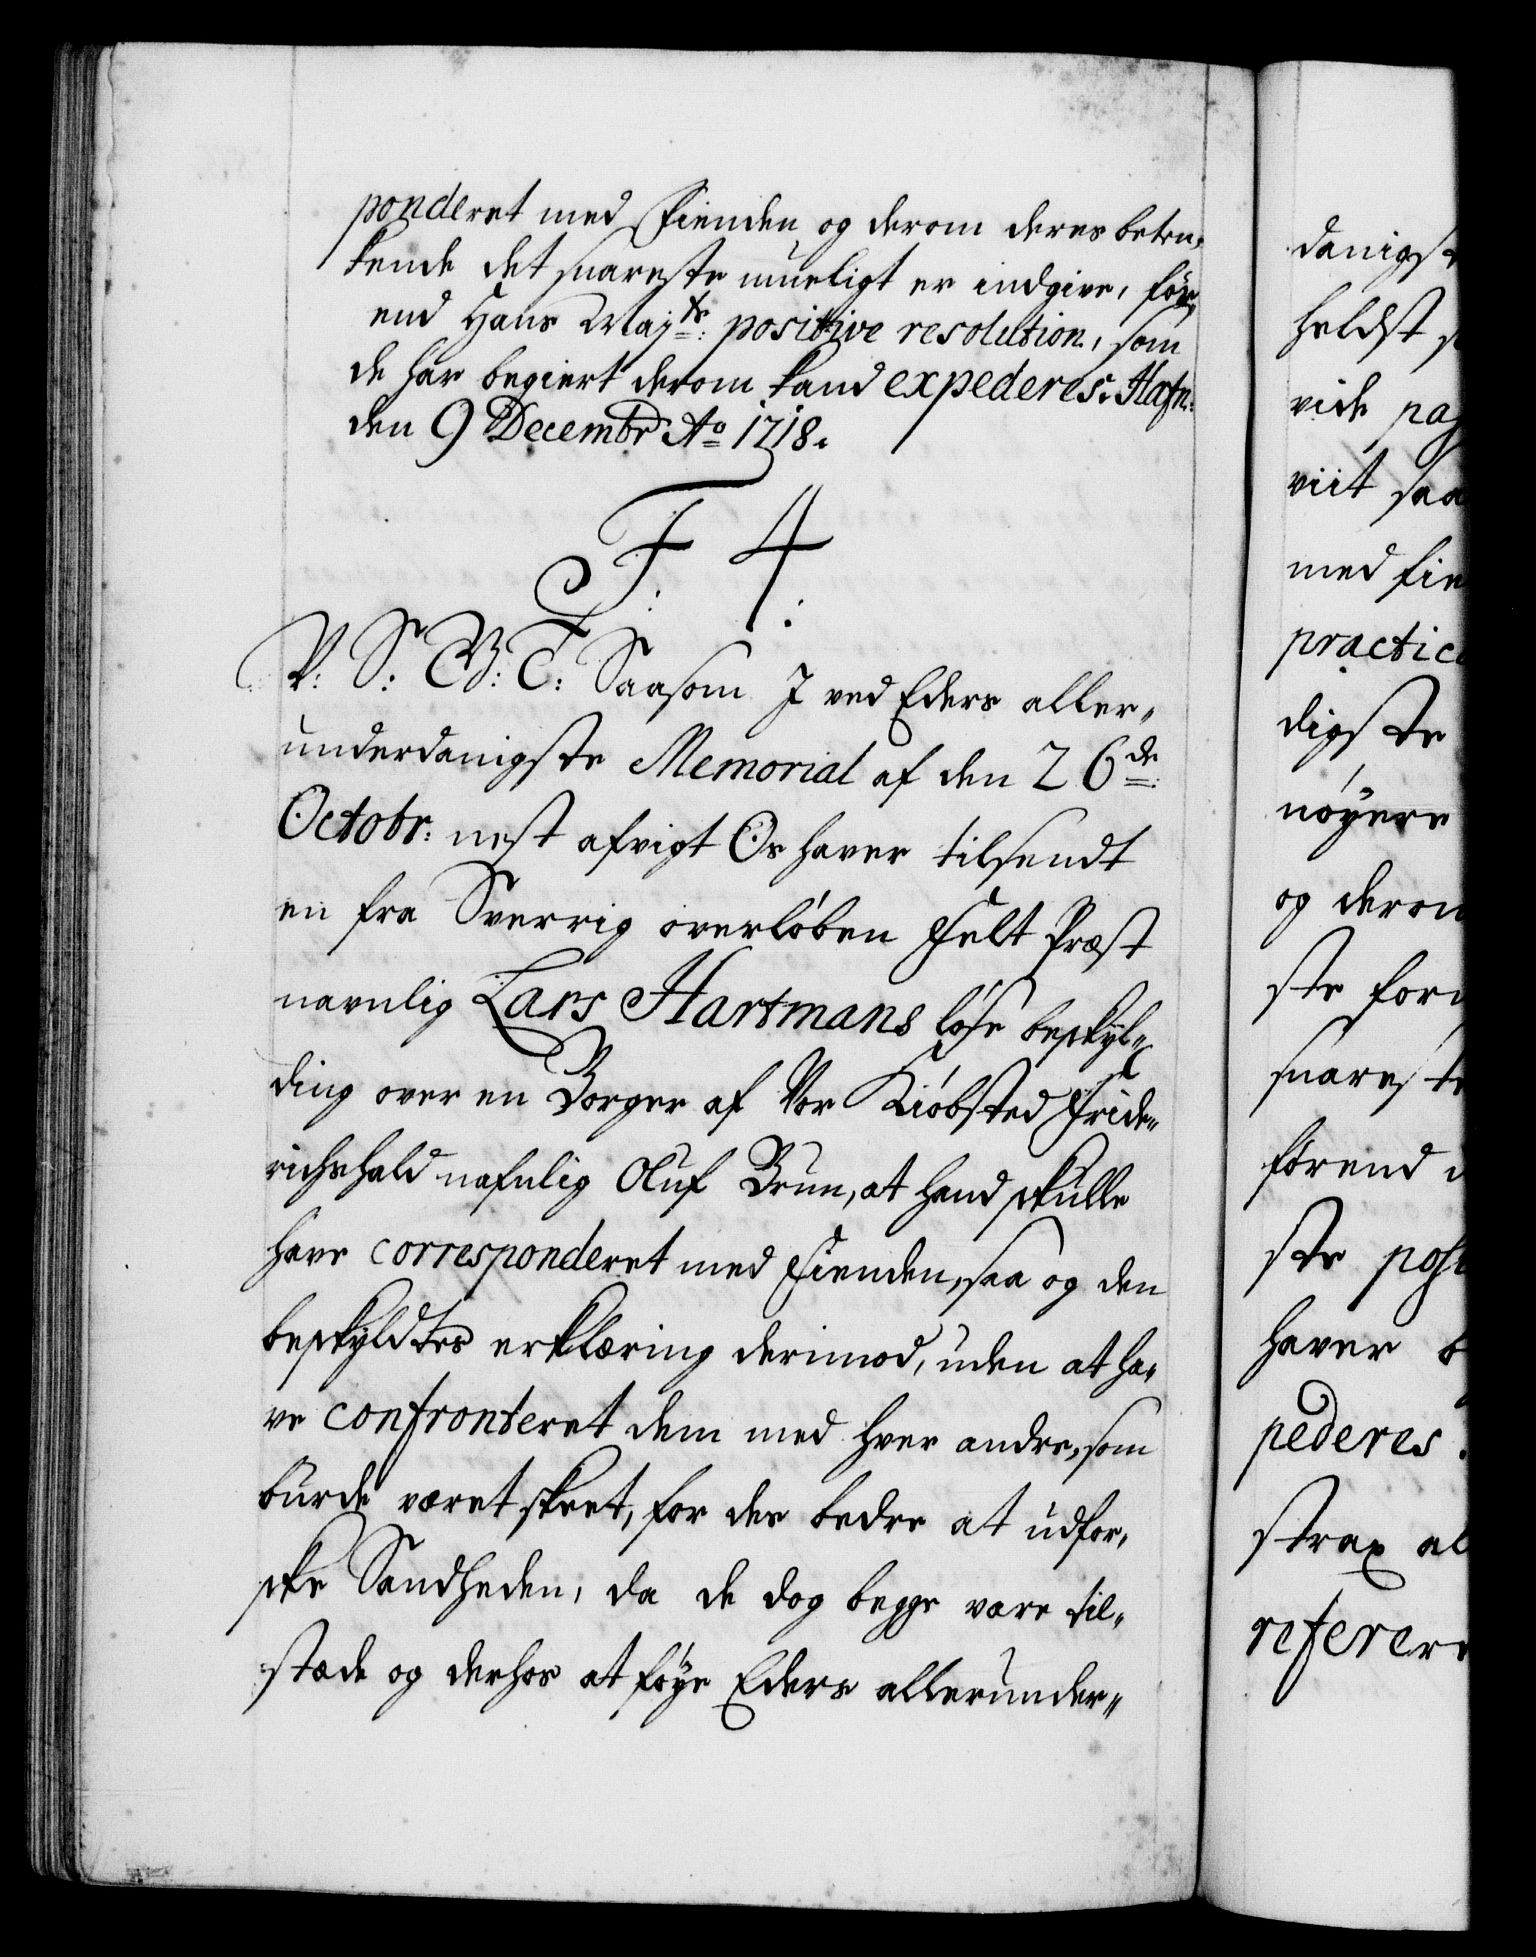 ponderet med Fienden og derom deres beten-
kende det snareste mueligt er indgive, før
end Hans Maj<sup>ts</sup>: positive resolution, som
de har begiert derom kand expederes. Hafn:
den 9 Decembr A<sup>o</sup> 1718.
F: 4.
V: S: G: T: Saasom I ved Eders aller-
underdanigste Memorial af den 26<sup>de</sup>
Octobr: nest afvigt Os haver tilsendt
en fra Sverrig overløben Felt Præst
navnlig Lars Hartmans løse beskyl-
ding over en Borger af Vor Kiøbsted Fride-
richshald nafnlig Oluf Brun, at hand skulle
have corresponderet med Fienden, saa og den
beskyldtes erklæring derimod, uden at ha-
ve confronteret dem med hver andre, som
burde været skeet, for des bedre at udfor-
ske Sandheden, da de dog begge vare til-
stæde og derhos at føye Eders allerunder-
danigst
heldst
vide
viit saa
med fie
practic
digste
nøyere
og derom
ste for
snareste
førend
ste posi
haver b
pederes.
strax al
referer